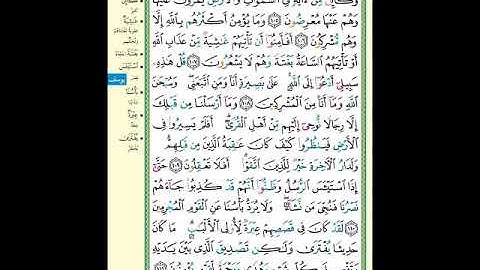 وَكَأَيِّن مِّنْ ءَايَةٍ فِى ٱلسَّمَٰوَٰتِ وَٱلْأَرْضِ يَمُرُّونَ عَلَيْهَا
وَهُمْ عَنْهَا مُعْرِضُونَ ١٠٥ وَمَا يُؤْمِنُ أَكْثَرُهُم بِٱللَّهِ إِلَّا
وَهُم مُّشْرِكُونَ ١٠٦ أَفَأَمِنُوٓا۟ أَن تَأْتِيَهُمْ غَٰشِيَةٌ مِّنْ عَذَابِ ٱللَّهِ
أَوْ تَأْتِيَهُمُ ٱلسَّاعَةُ بَغْتَةً وَهُمْ لَا يَشْعُرُونَ ١٠٧ قُلْ هَٰذِهِۦ
سَبِيلِىٓ أَدْعُوٓا۟ إِلَى ٱللَّهِ عَلَىٰ بَصِيرَةٍ أَنَا۠ وَمَنِ ٱتَّبَعَنِى وَسُبْحَٰنَ
ٱللَّهِ وَمَآ أَنَا۠ مِنَ ٱلْمُشْرِكِينَ ١٠٨ وَمَآ أَرْسَلْنَا مِن قَبْلِكَ
إِلَّا رِجَالًا نُّوحِىٓ إِلَيْهِم مِّنْ أَهْلِ ٱلْقُرَىٰٓ أَفَلَمْ يَسِيرُوا۟ فِى
ٱلْأَرْضِ فَيَنظُرُوا۟ كَيْفَ كَانَ عَٰقِبَةُ ٱلَّذِينَ مِن قَبْلِهِمْ
وَلَدَارُ ٱلْءَاخِرَةِ خَيْرٌ لِّلَّذِينَ ٱتَّقَوْا۟ أَفَلَا تَعْقِلُونَ ١٠٩ حَتَّىٰٓ
إِذَا ٱسْتَيْـَٔسَ ٱلرُّسُلُ وَظَنُّوٓا۟ أَنَّهُمْ قَدْ كُذِبُوا۟ جَآءَهُمْ
نَصْرُنَا فَنُجِّىَ مَن نَّشَآءُ وَلَا يُرَدُّ بَأْسُنَا عَنِ ٱلْقَوْمِ ٱلْمُجْرِمِينَ
١١٠ لَقَدْ كَانَ فِى قَصَصِهِمْ عِبْرَةٌ لِّأُو۟لِى ٱلْأَلْبَٰبِ مَا كَانَ
حَدِيثًا يُفْتَرَىٰ وَلَٰكِن تَصْدِيقَ ٱلَّذِى بَيْنَ يَدَيْهِ
وَتَفْصِيلَ كُلِّ شَىْءٍ وَهُدًى وَرَحْمَةً لِّقَوْمٍ يُؤْمِنُونَ ١١١
يوسف